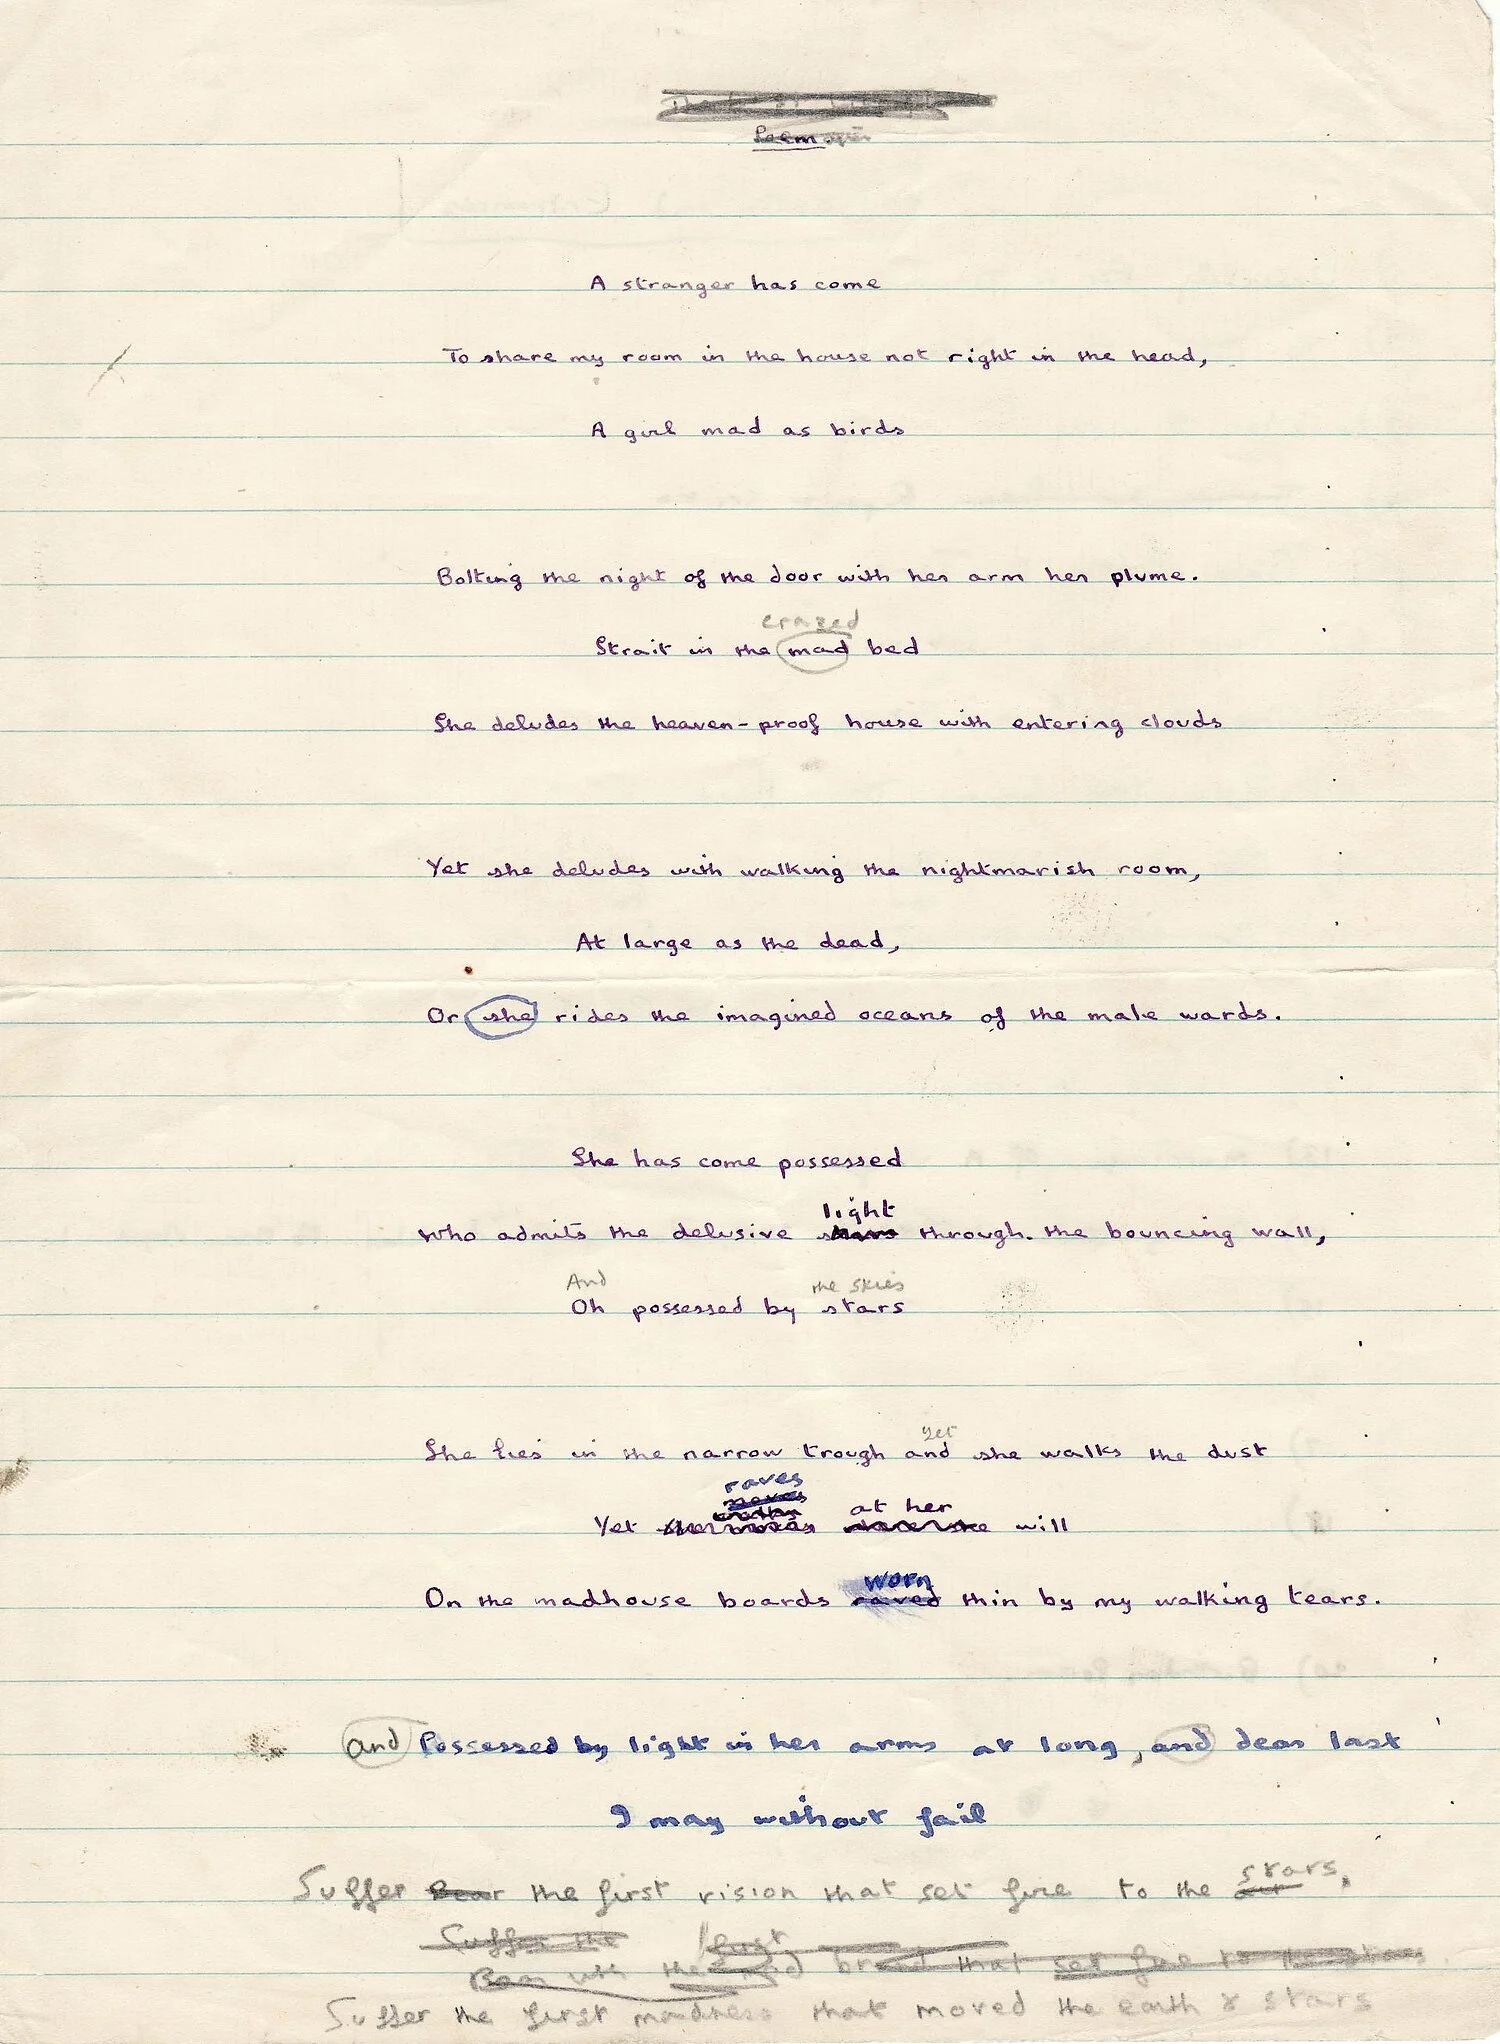 Poem
A stranger has come
To share my room in the house not right in the head,
A girl mad as birds
Bolting the night of the door with her arm her plume.
crazed
Strait in the mad bed
She deludes the heaven-proof house with entering clouds
Yet she deludes with walking the nightmarish room,
At large as the dead,
Or she rides the imagined oceans of the male wards.
She has come possessed
light
Who admits the delusive stars through the bouncing wall,
And the skies
Oh possessed by stars
yet
She lies in the narrow trough and she walks the dust
raves
moves
at her
Yet will
worn
On the madhouse boards raved thin by my walking tears.
and Possessed by light in her arms at long, and dear last
I may without fail
stars.
Suffer Bear the first vision that set fire to the
Suffer the first
Bear with the that set fire to the stars.
Suffer the first madness that moved the earth & stars